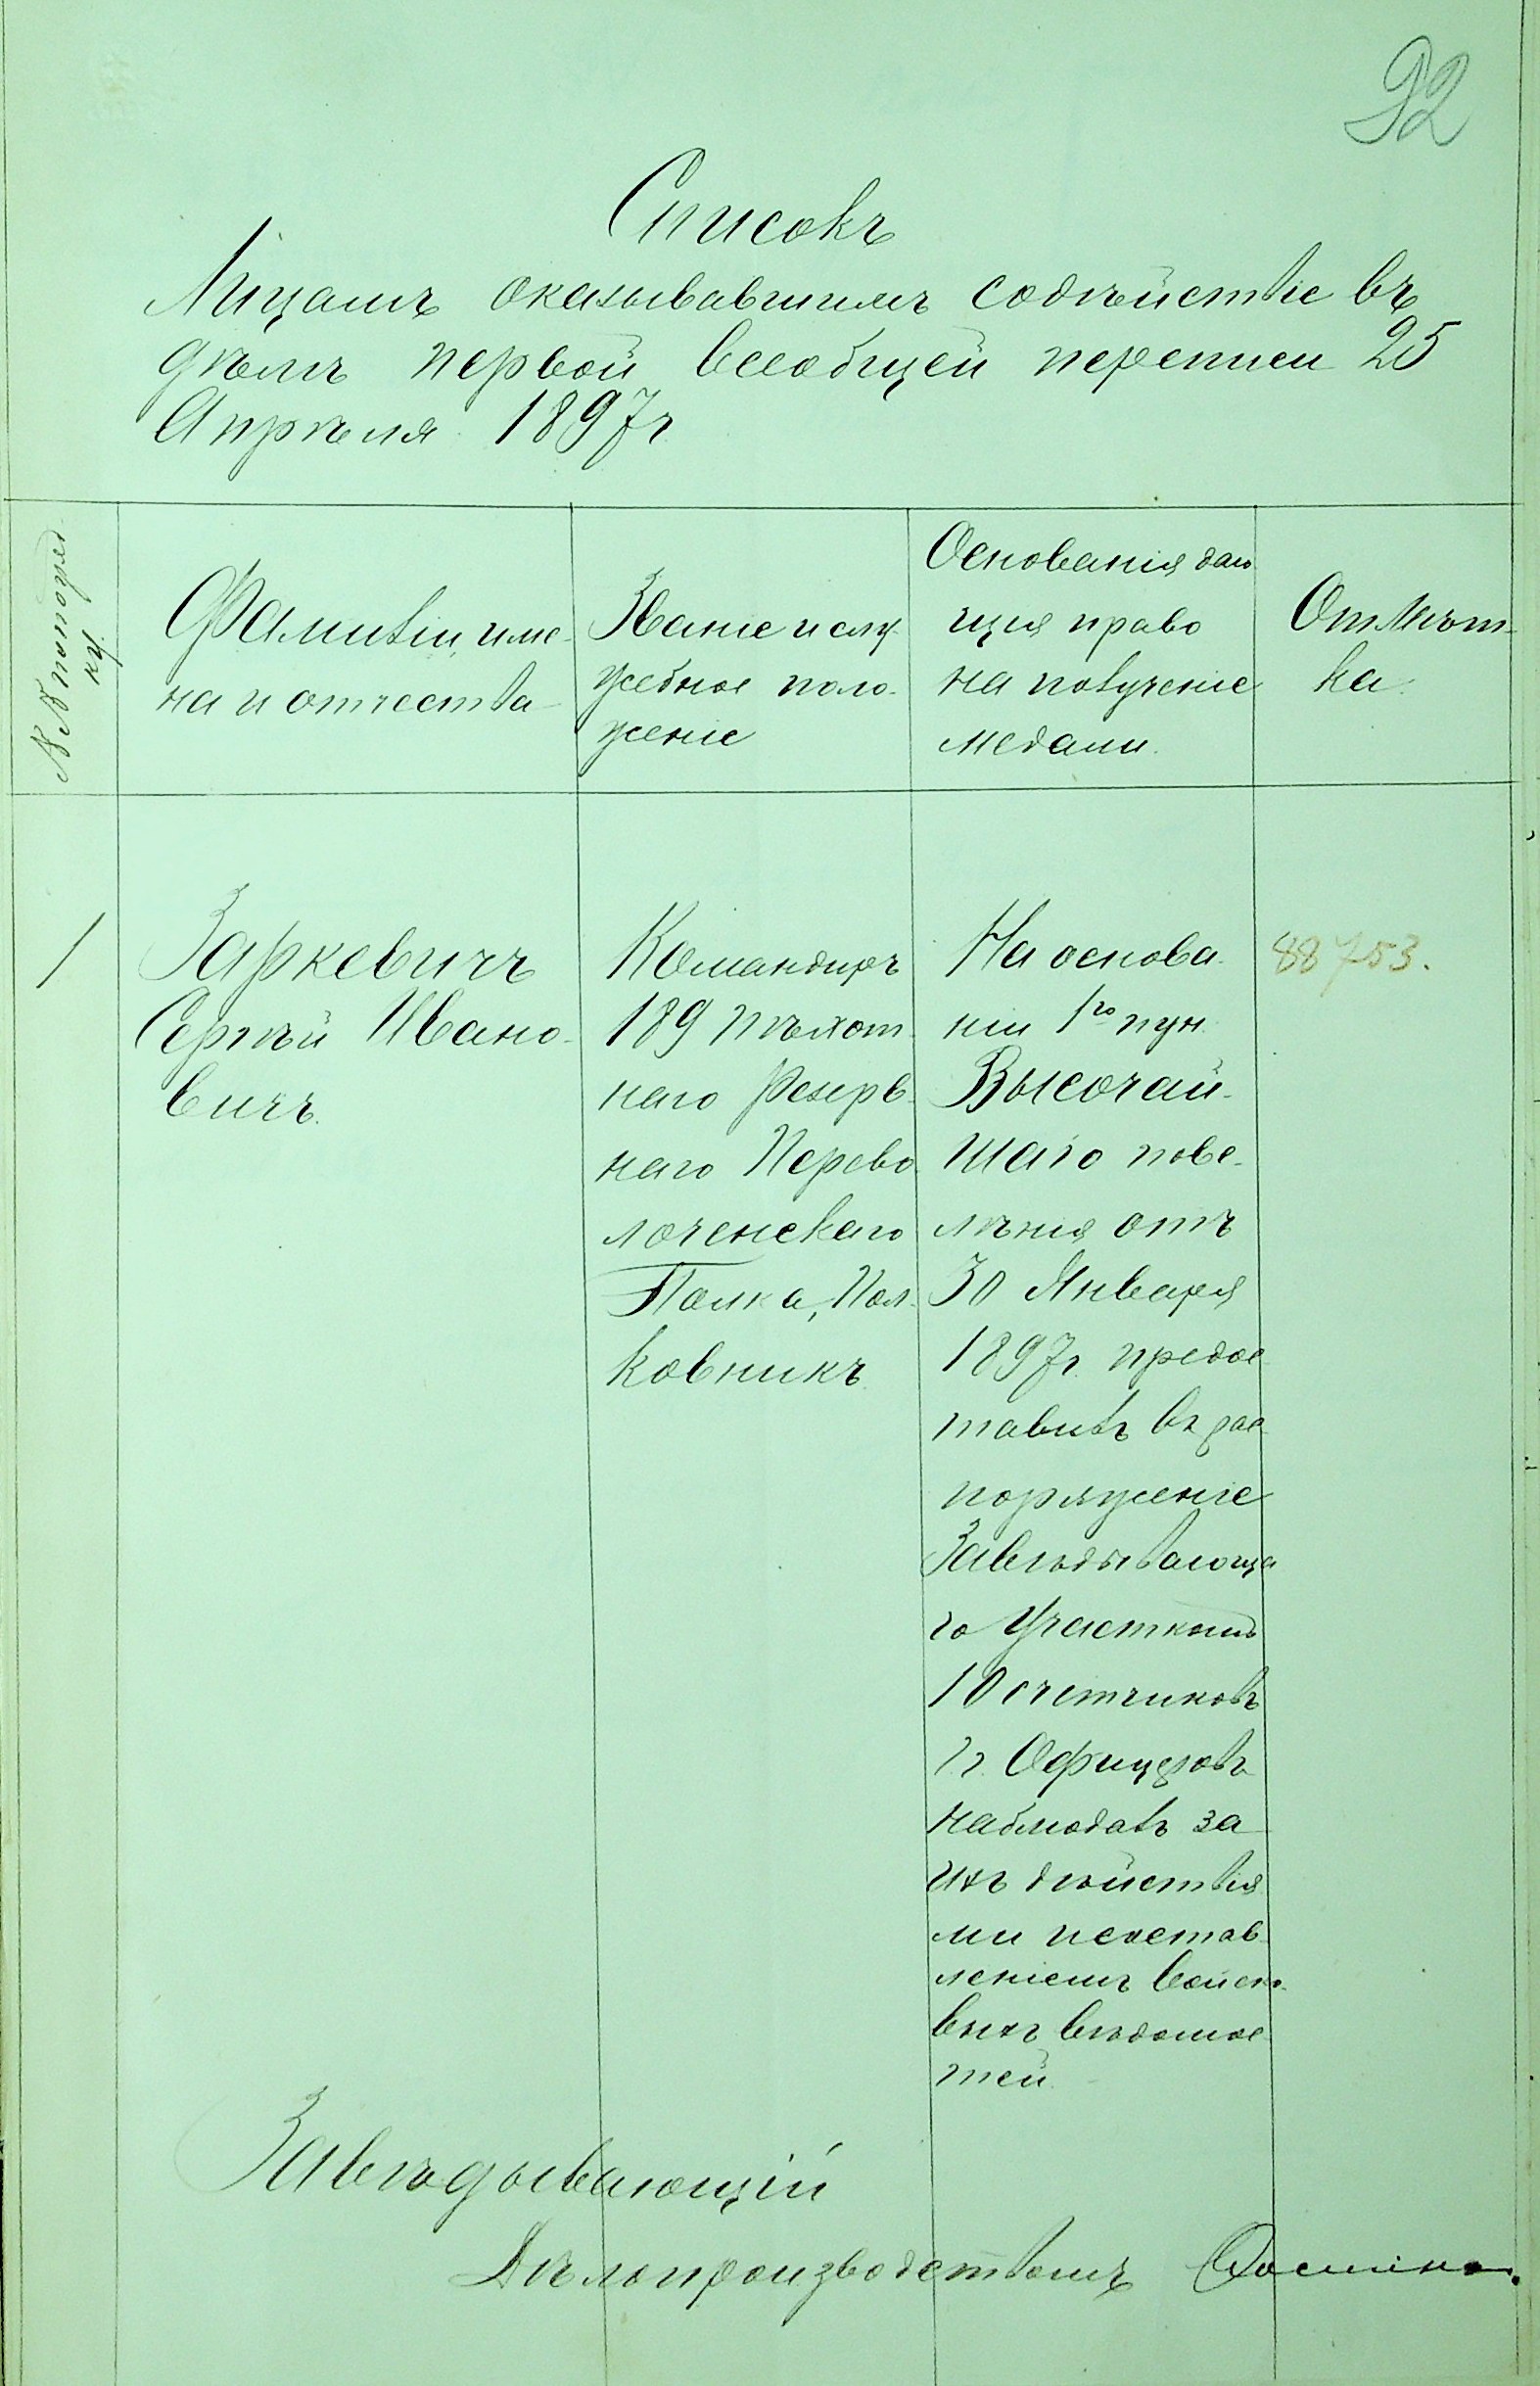 92
Списокъ
Лицамъ оказывавшимъ содѣйствіе въ
дѣлѣ первой всеобщей переписи 25
Апрѣля 1897 г
№№ по поряд
ку.
Фамиліи, име-
на и отчества
Званіе и слу-
жебное поло-
женіе
Основанія даю
щія право
на полученіе
медали.
Отмѣт-
ка.
1
Заркевичъ
Сергѣй Ивано-
вичъ.
Командиръ
189 пѣхот-
наго Резерв-
наго Перево-
лоченскаго
Полка, Пол-
ковникъ.
На основа-
ніи 1го пун.
Высочай-
шаго пове-
лѣнія отъ
30 Января
1897 г. предос
тавилъ въ рас
поряженіе
Завѣдывающа
го Участкомъ
10 счетчиковъ
г.г. Офицеровъ
наблюдалъ за
ихъ дѣйствія
ми и состав-
леніемъ войско-
выхъ вѣдомос
тей.
88753.
Завѣдывающій
Дѣлопроизводствомъ